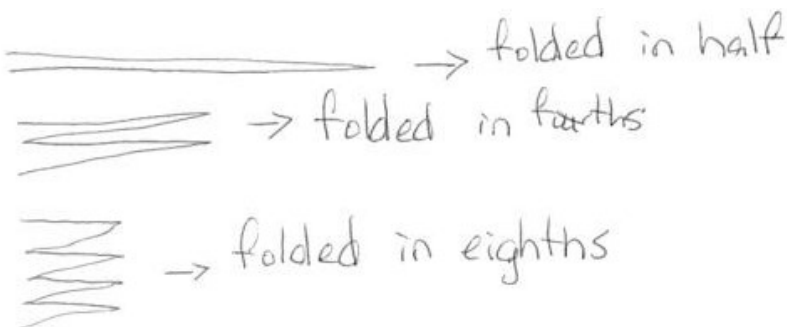 → folded in half
→ folded in fourths
→ folded in eighths